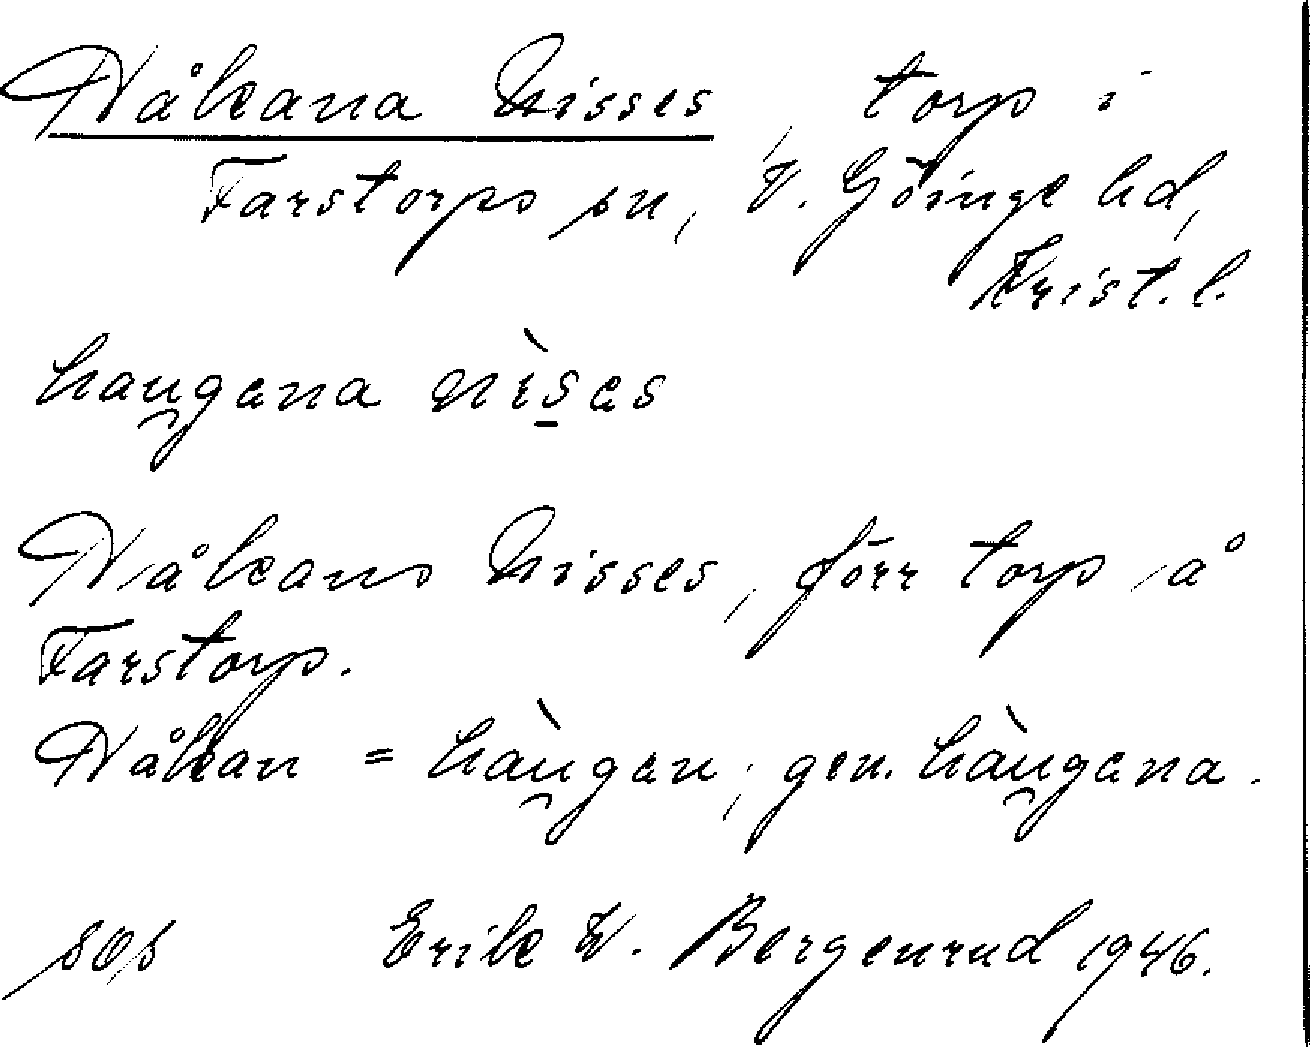 Håkana Nisses, torp i
Farstorps sn, V. Göinge hd,
Krist. l.
hau̯gana nìs̠əs
Håkans Nisses, förr torp å
Farstorp.
Håkan = hàu̯gan, gen. hàu̯gana.
sos Erik W. Bergenrud 1946.